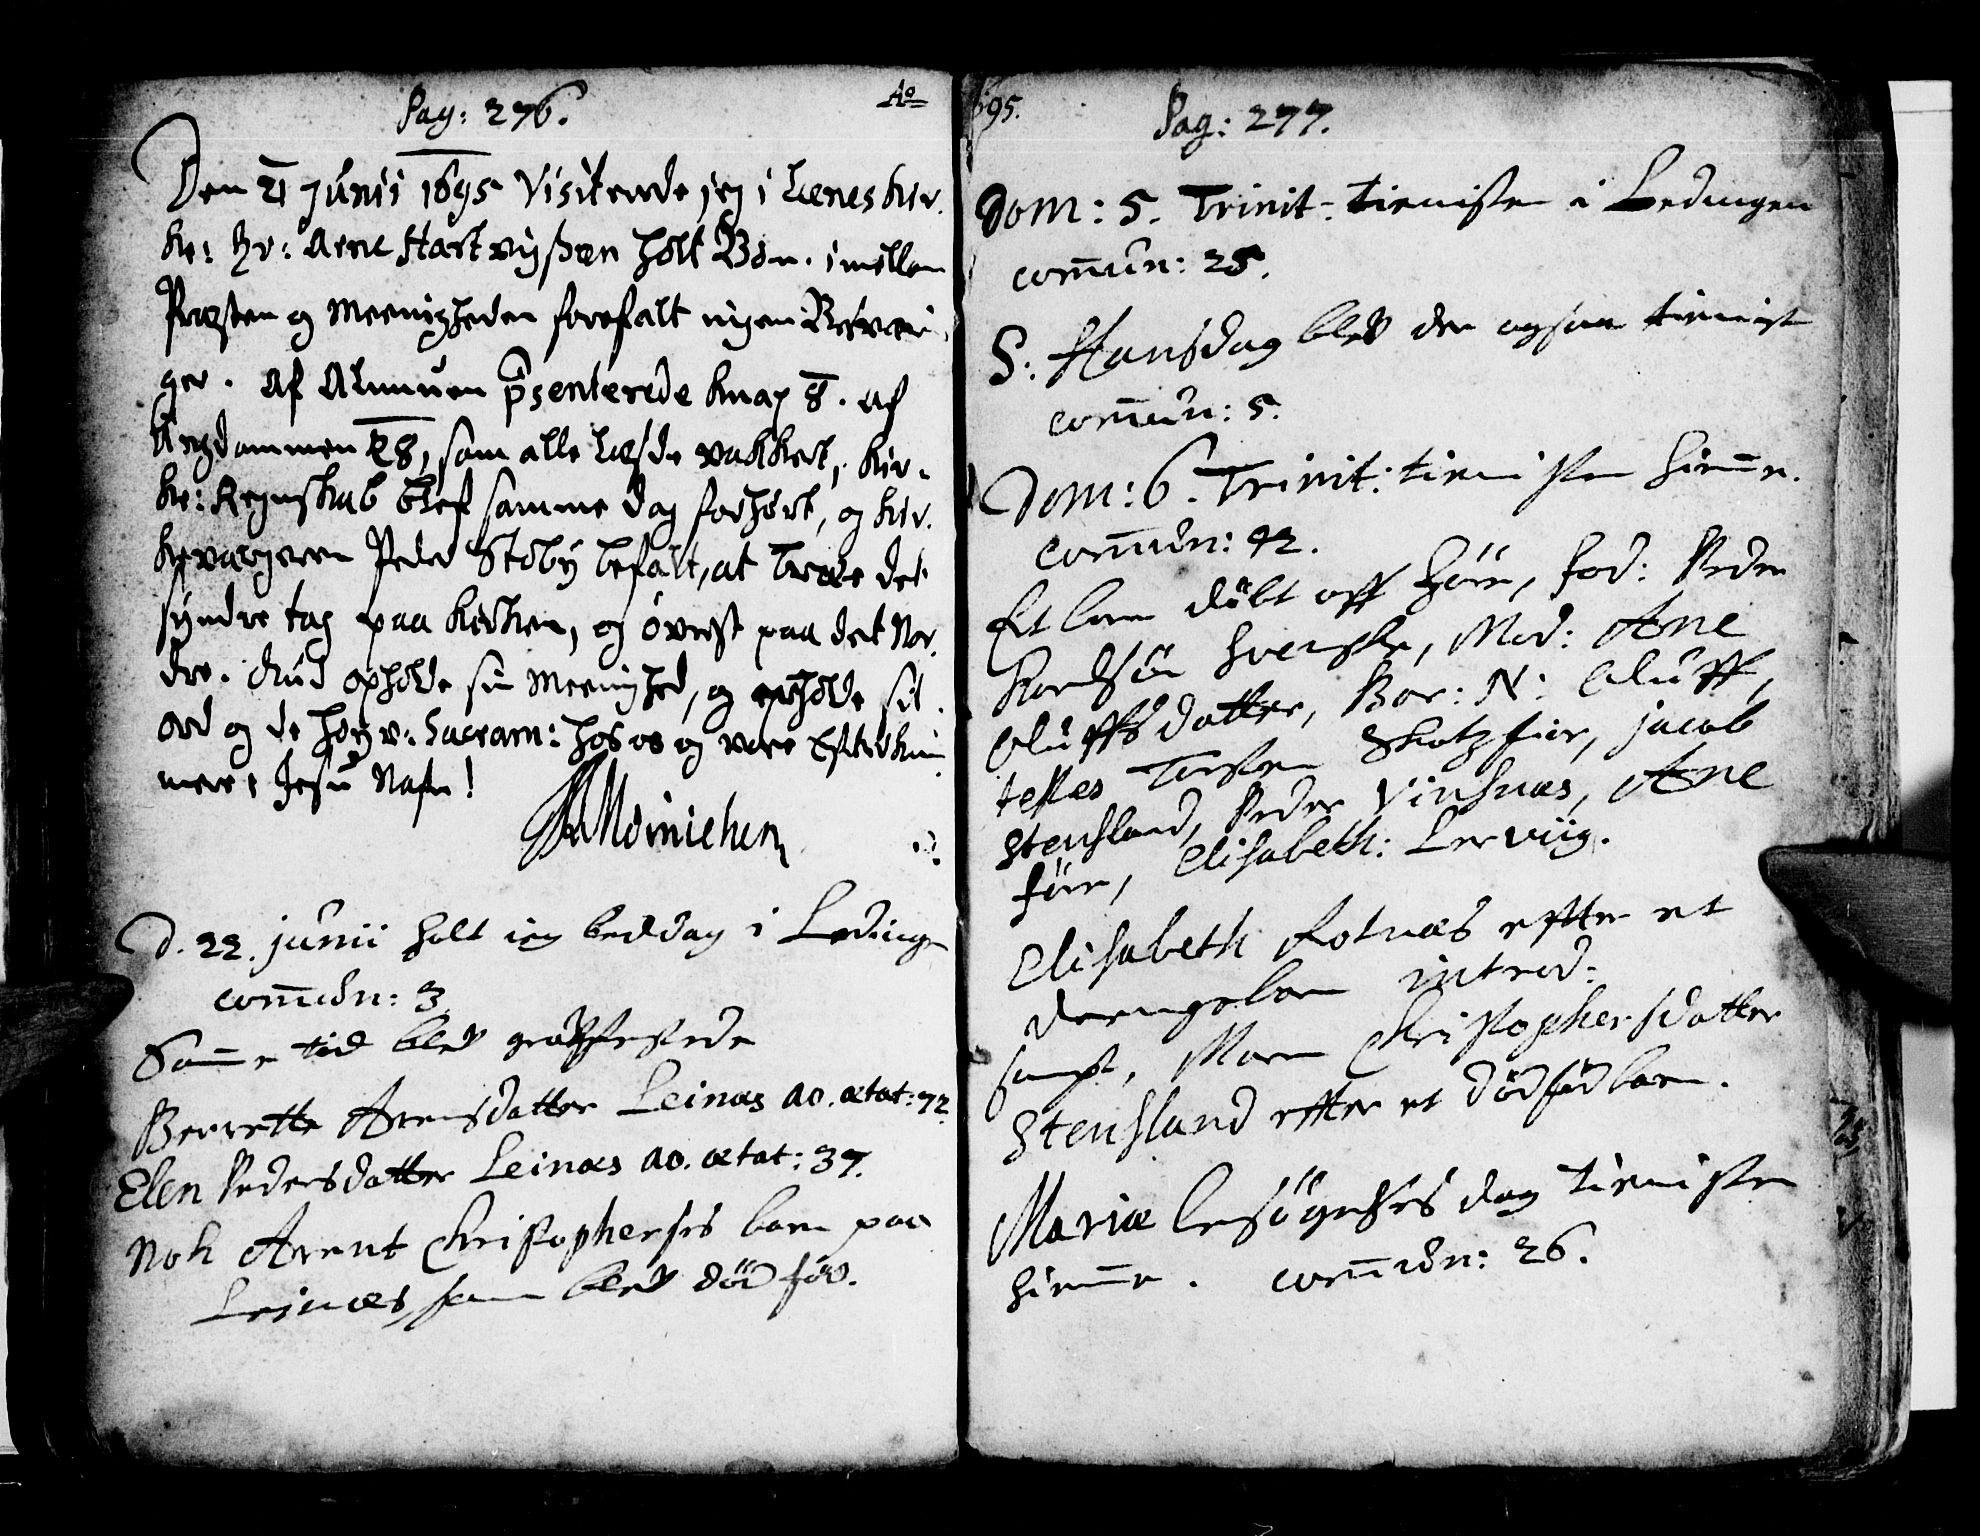 Pag: 276.
Aº
Den 21 Junii 1695 Visiterede jeg i Lenes Kir.
ke: Hr: Arne Hartvigßen holt Bøn. imellem
Præsten og Meenigheden forefalt ingen Besvær.
ger. Af Almuen p̄senterede knap 8. af
Ungdommen 28, som alle Læsde vakkert, Kir.
ke: Regnskab blef samme dag forhørt, og Kir.
keværgeren Peder Støby befalt, at Træde det
syndre tag paa Kirken, og øverst paa det Nor.
dre. Gud opholde sin Meenighed, og opholde sit
ord og de høyv: Sacram: hos os og vore Efterkom
mere i Jesu Nafn!
d. 22. junii holt ieg beddag i Lødingen
com̄un: 3
Sam̄e tid bleff græsfestede
Berrette Arensdatter Leinæs ao. ætat: 72
Elen Pedersdatter Leinæs ao. ætat: 37.
Nok Arent Christophersøs barn paa
Leinæs, som bleff dødfød.
1695.
Pag: 277.
Dom: 5. Trinit: tienisten i Lødingen
com̄un: 25.
S: Hansdag bleff der ogsaa tienist
com̄un: 5.
Dom: 6. Trinit: tienisten hiem̄e.
com̄un: 42.
Et barn døbt aff Høie, Fad: Peder
Svenske, Mod: Ane
Oluffsdatter, Bar: N: Oluff,
testes Torsten Skotzfior, jacob
Stensland, Peder Vinsnæs, Ane
Elisabeth: Lerviig.
Elisabeth Rotnæs effter et
drengebarn introd:
sampt, Maren Christophersdatter
Stensland effter et dødfød barn.
Mariæ besøgelses dag tienisten
hiem̄e. com̄un: 26.